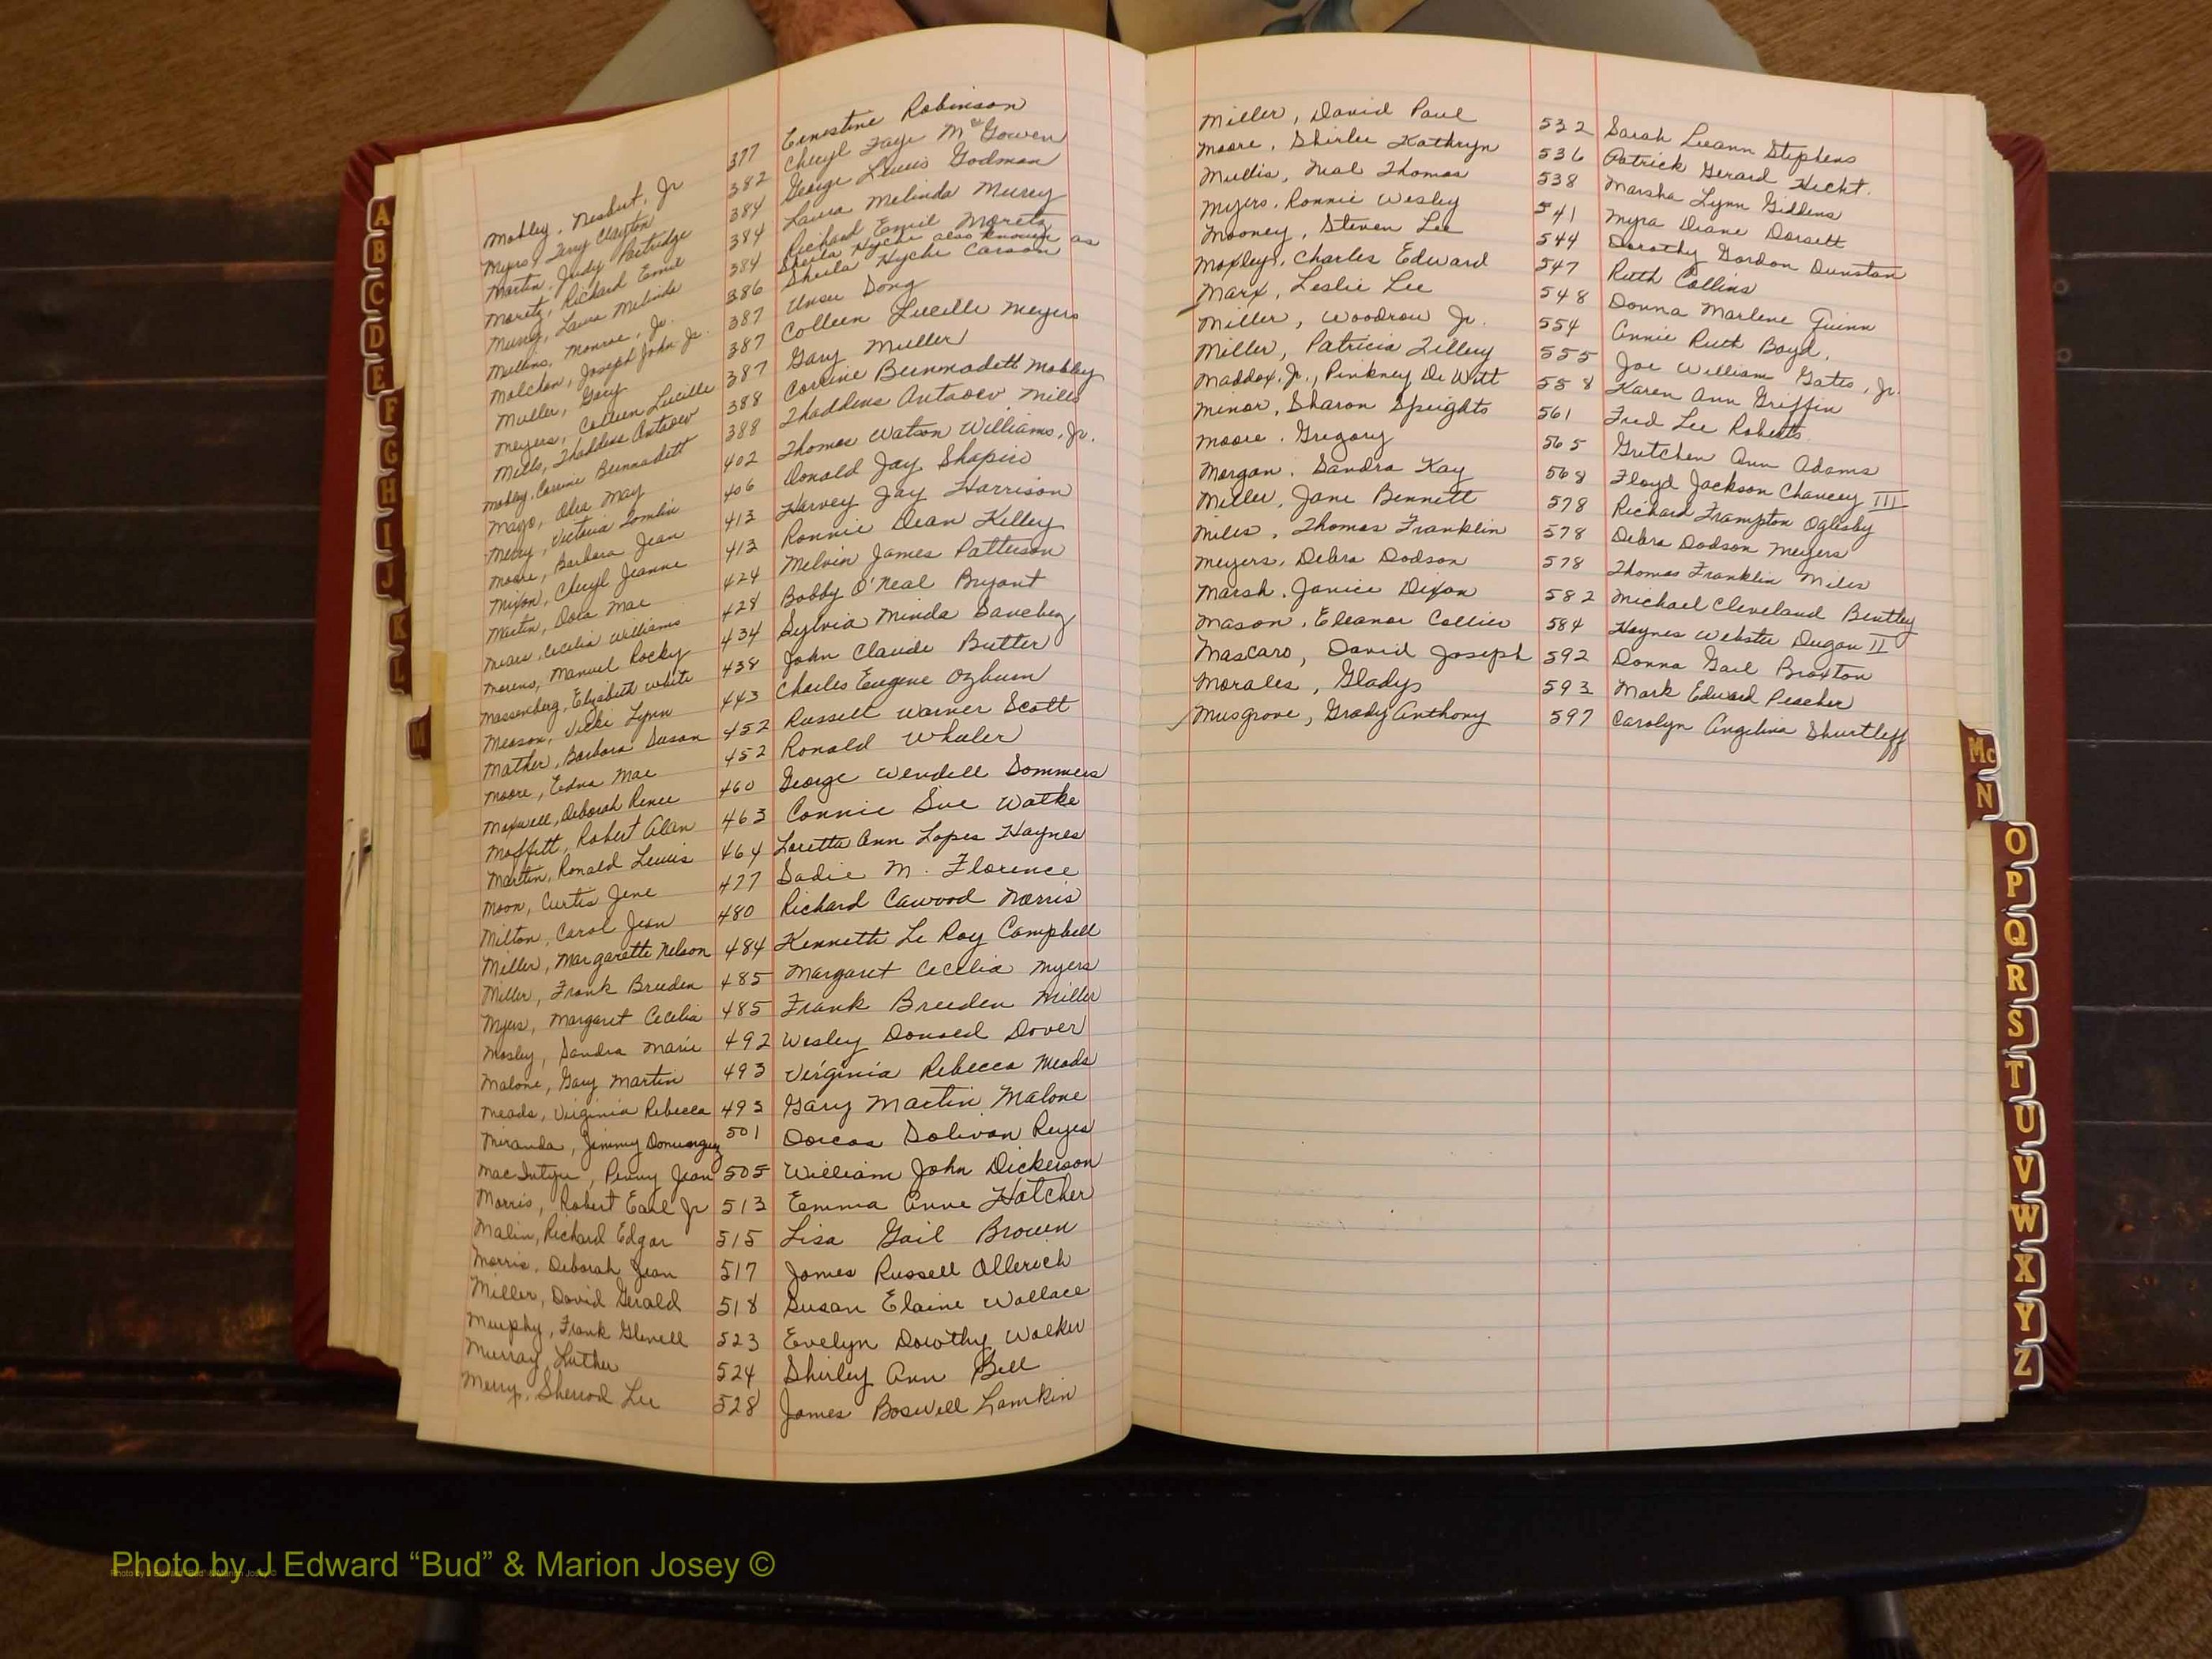 Mobley, Nesbert, Jr 377 Ernestine Robinson
Myers, Terry Clayton 382 Cheryl Faye McGowen
Martin, Judy Partridge 384 George Lewis Godman
Moretz, Richard Emil 384 Laura Melinda Murry
Murry, Laura Melinda 384 Richard Emil Moretz
Mullins, Monroe, Jr. 386 Sheila Hyche also known as Sheila Hyche Carson
Molchan, Joseph John Jr. 387 Unsu Song
Muller, Gary 387 Colleen Lucille Meyers
Meyers, Colleen Lucille 387 Gary Muller
Mills, Thaddeus Antaeov 388 Corrine Bernnadett Mobley
Mobley, Corrine Bernnadett 388 Thaddeus Antaeov Mills
Mayo, Olea May 402 Thomas Watson Williams, Jr.
Merry, Victoria Tomlin 406 Donald Jay Shapiro
Moore, Barbara Jean 413 Harvey Jay Harrison
Mixon, Cheryl Jeanne 413 Ronnie Dean Kelley
Martin, Dora Mae 424 Melvin James Patterson
Mears, Cecilia Williams 428 Bobby O'Neal Bryant
Moreno, Manuel Rocky 434 Sylvia Minda
Massenberg, Elizabeth White 438 John Claude Butler
Meason, Vicki Lynn 443 Charles Eugene Ozburn
Mather, Barbara Susan 452 Russell Warner Scott
Moore, Edna Mae 452 Ronald Whaler
Maxwell, Deborah Renee 460 George Wendell Sommers
Moffitt, Robert Alan 463 Connie Sue Watke
Martin, Ronald Lewis 464 Loretta Ann Lopes Haynes
Moon, Curtis Jene 477 Sadie M. Florence
Milton, Carol Jean 480 Richard Cawood Norris
Miller, Margarette Nelson 484 Kenneth Le Roy Campbell
Miller, Frank Breeden 485 Margaret Cecelia Myers
Myers, Margaret Cecelia 485 Frank Breeden Miller
Mosley, Sandra Marie 492 Wesley Donald Dover
Malone, Gary Martin 493 Virginia Rebecca Meads
Meads, Virginia Rebecca 493 Gary Martin Malone
Miranda, Jimmy Dominguez 501 Dorcas Solivan Reyes
MacIntyre, Penny Jean 505 William John Dickerson
Morris, Robert Earl Jr 513 Emma Anne Hatcher
Malin, Richard Edgar 515 Lisa Gail Brown
Morris, Deborah Jean 517 James Russell Ollerich
Miller, David Gerald 518 Susan Elaine Wallace
Murphy, Frank Glenell 523 Evelyn Dorothy Walker
Murray, Luther 524 Shirley Ann Bell
Merry, Sherrod Lee 528 James Boswell Lamkin
Miller, David Paul 532 Sarah Leeann Stephens
Moore, Shirlee Kathryn 536 Patrick Gerard Hecht.
Mullis, Neal Thomas 538 Marsha Lynn Giddens
Myers, Ronnie Wesley 541 Myra Diane Dorsett
Mooney, Steven Lee 544 Dorothy Gordon Dunstan
Moxley, Charles Edward 547 Ruth Collins
Marx, Leslie Lee 548 Donna Marlene Guinn
Miller, Woodrow Jr. 554 Annie Ruth Boyd.
Miller, Patricia Tillery 555 Joe William Gates, Jr.
Maddox, Jr., Pinkney De Witt 558 Karen Ann Griffin
Minor, Sharon Speights 561 Fred Lee Roberts
Moore, Gregory 565 Gretchen Ann Adams
Morgan, Sandra Kay 568 Floyd Jackson Chancey III
Miller, Jane Bennett 578 Richard Frampton Oglesby
Miles, Thomas Franklin 578 Debra Dodson Meyers
Meyers, Debra Dodson 578 Thomas Franklin Miles
Marsh, Janice Dixon 582 Michael Cleveland Bentley
Mason, Eleanor Collier 584 Haynes Webster Dugan II
Mascaro, David Joseph 592 Donna Gail Broxton
Morales, Gladys 593 Mark Edward Peacher
Musgrove, Grady Anthony 597 Carolyn Angelina Shurtleff
A
B
C
D
E
F
G
H
I
J
K
L
M
Mc
N
O
P
Q
R
S
T
U
V
W
X
Y
Z
Photo by J Edward “Bud” & Marion Josey ©
Photo by J Edward “Bud” & Marion Josey ©